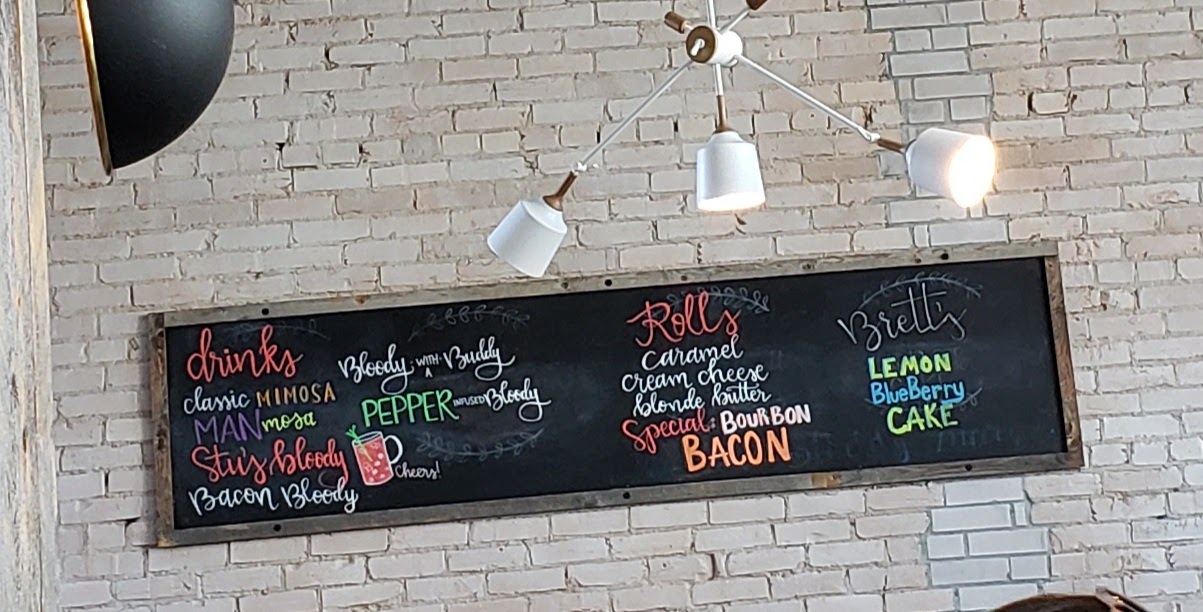 drinks
classic MIMOSA
MANmosa
Stu's bloody
Bacon Bloody
Bloody WITH A Buddy
PEPPER INFUSED Bloody
Cheers!
Rolls
caramel
cream cheese
blonde butter
Special: BOURBON
BACON
Brett's
LEMON
BlueBerry
CAKE